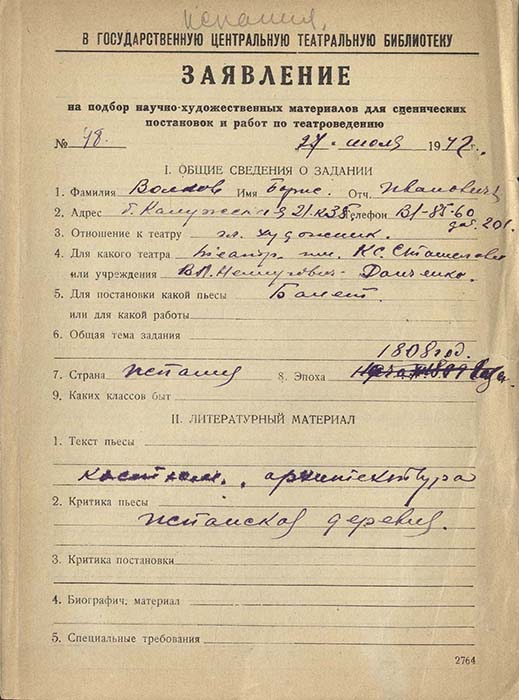 Испания.
В ГОСУДАРСТВЕННУЮ ЦЕНТРАЛЬНУЮ ТЕАТРАЛЬНУЮ БИБЛИОТЕКУ
ЗАЯВЛЕНИЕ
на подбор научно-художественных материалов для сценических
постановок и работ по театроведению
№ 48. 27 июля 1942 г.
I. ОБЩИЕ СВЕДЕНИЯ О ЗАДАНИИ
1. Фамилия Волков Имя Борис. Отч. Иванович
2. Адрес Б. Калужская 21 к 38 Телефон В1-85-60
доб. 201.
3. Отношение к театру гл. художник.
4. Для какого театра театр им. К.С. Станиславс
или учреждения В.И. Немирович-Данченко.
5. Для постановки какой пьесы Балет.
или для какой работы
6. Общая тема задания
1808 год.
7. Страна Испания 8. Эпоха
9. Каких классов быт
II. ЛИТЕРАТУРНЫЙ МАТЕРИАЛ
1. Текст пьесы
костюм, архитектура
2. Критика пьесы
Испанская деревня.
3. Критика постановки
4. Биографич. материал
5. Специальные требования
2764